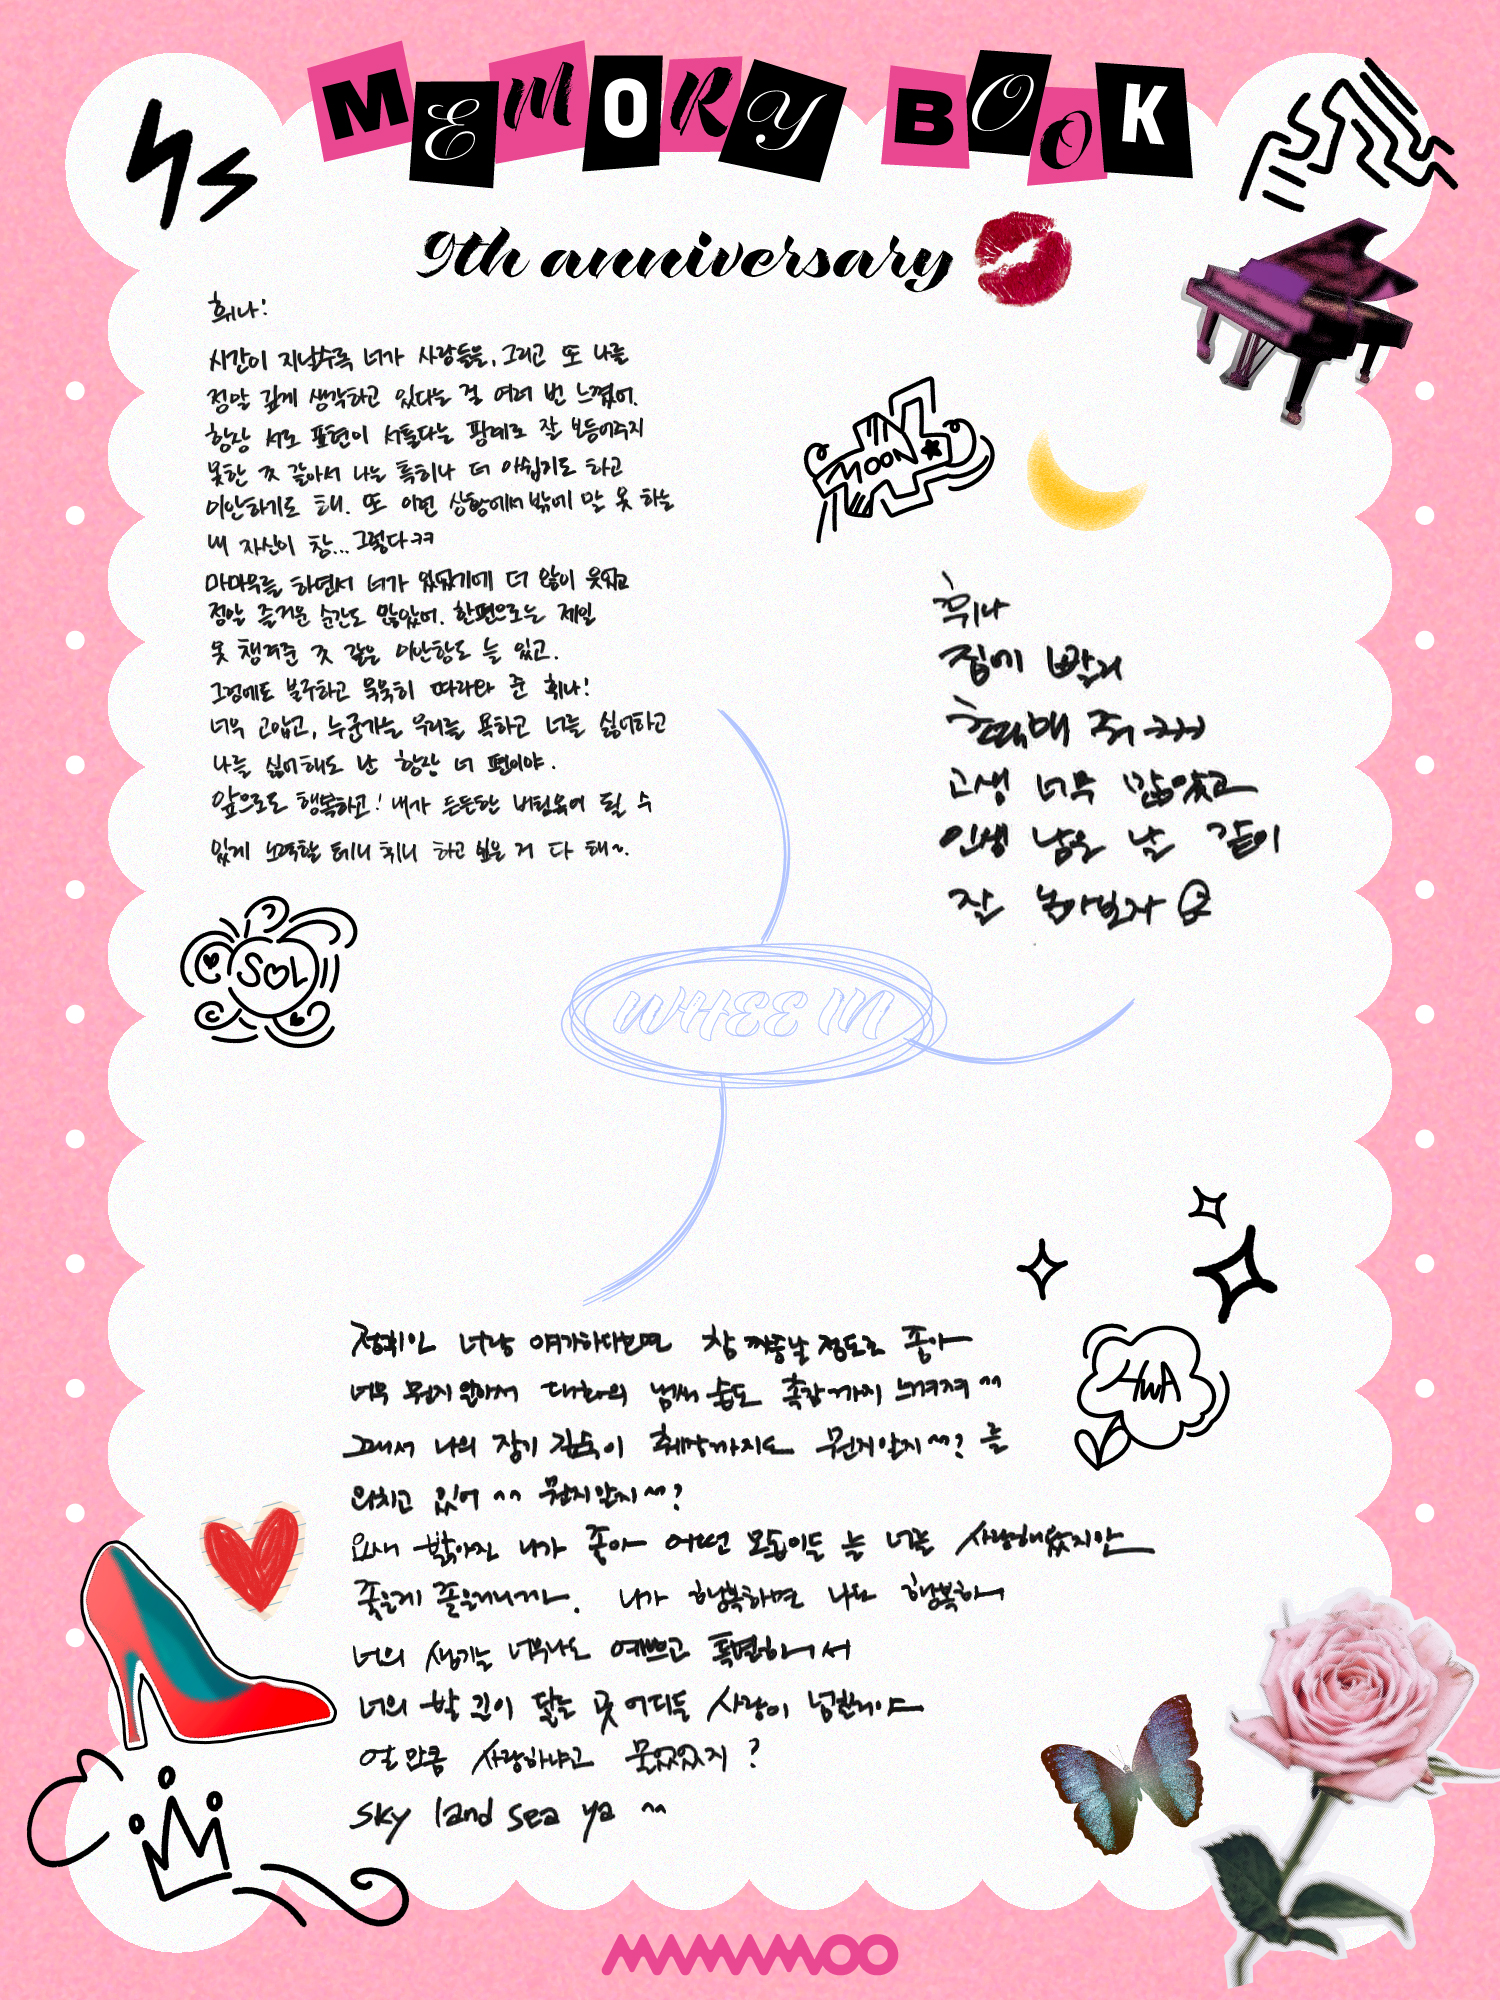 MEMORY BOOK
9th anniversary
휘나!
시간이 지날수록 너가 사람들을, 그리고 또 나를
정말 깊게 생각하고 있다는 걸 여러 번 느꼈어.
항상 서로 표현이 서툴다는 핑계로 잘 보듬어주지
못한 것 같아서 나는 특히나 더 아쉽기도 하고
미안하기도 해. 또 이런 상황에서 밖에 말 못 하는
내 자신이 참... 그렇다ㅋㅋ
마마무를 하면서 너가 있었기에 더 많이 웃었고
정말 즐거운 순간도 많았어. 한편으로는 제일
못 챙겨준 것 같은 미안함도 늘 있고.
그럼에도 불구하고 묵묵히 따라와 준 휘나!
너무 고맙고, 누군가는 우리를 욕하고 너를 싫어하고
나를 싫어해도 난 항상 너 편이야.
앞으로도 행복하고! 내가 든든한 버팀목이 될 수
있게 노력할 테니 휘니 하고 싶은 거 다 해~.
SOL
MOON
휘나
짐에 빨리
고생 너무 많았고
인생 남은 날 같이
잘 놀아보자
WHEE IN
정휘인 너랑 얘기하다보면 참 짜증날 정도로 좋아
너무 뭔지 알아서 대화의 넘어 숨도 촉감까지 느껴져 ^^
그래서 나의 장기 깊숙이 췌장까지도 뭔지알지^^? 를
외치고 있어 ^^ 뭔지알지^^?
요새 밝아진 니가 좋아 어떤 모습이든 늘 너를 사랑해왔지만
좋은게 좋은거니까. 니가 행복하면 나도 행복해
너의 생기는 너무나도 예쁘고 특별해서
너의 발 길이 닿는 곳 어디든 사랑이 넘칠거야
얼만큼 사랑하냐고 물었었지?
sky land sea ya ^^
HWA
MAMAMOO